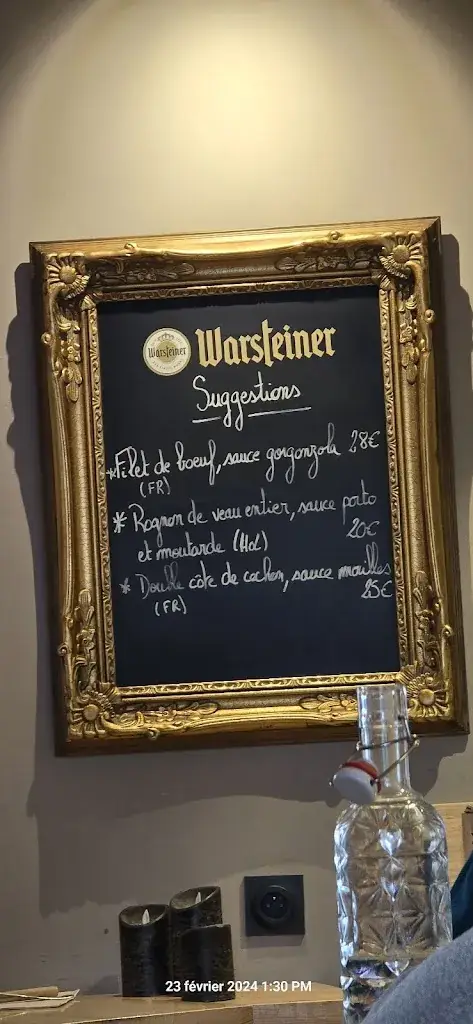 Warsteiner
Warsteiner
Suggestions
*Filet de boeuf, sauce gorgonzola 28€
(FR)
* Rognon de veau entier, sauce porto
et moutarde (Hol) 20€
* Double côte de cochon, sauce morilles
(FR) 25€
23 février 2024 1:30 PM